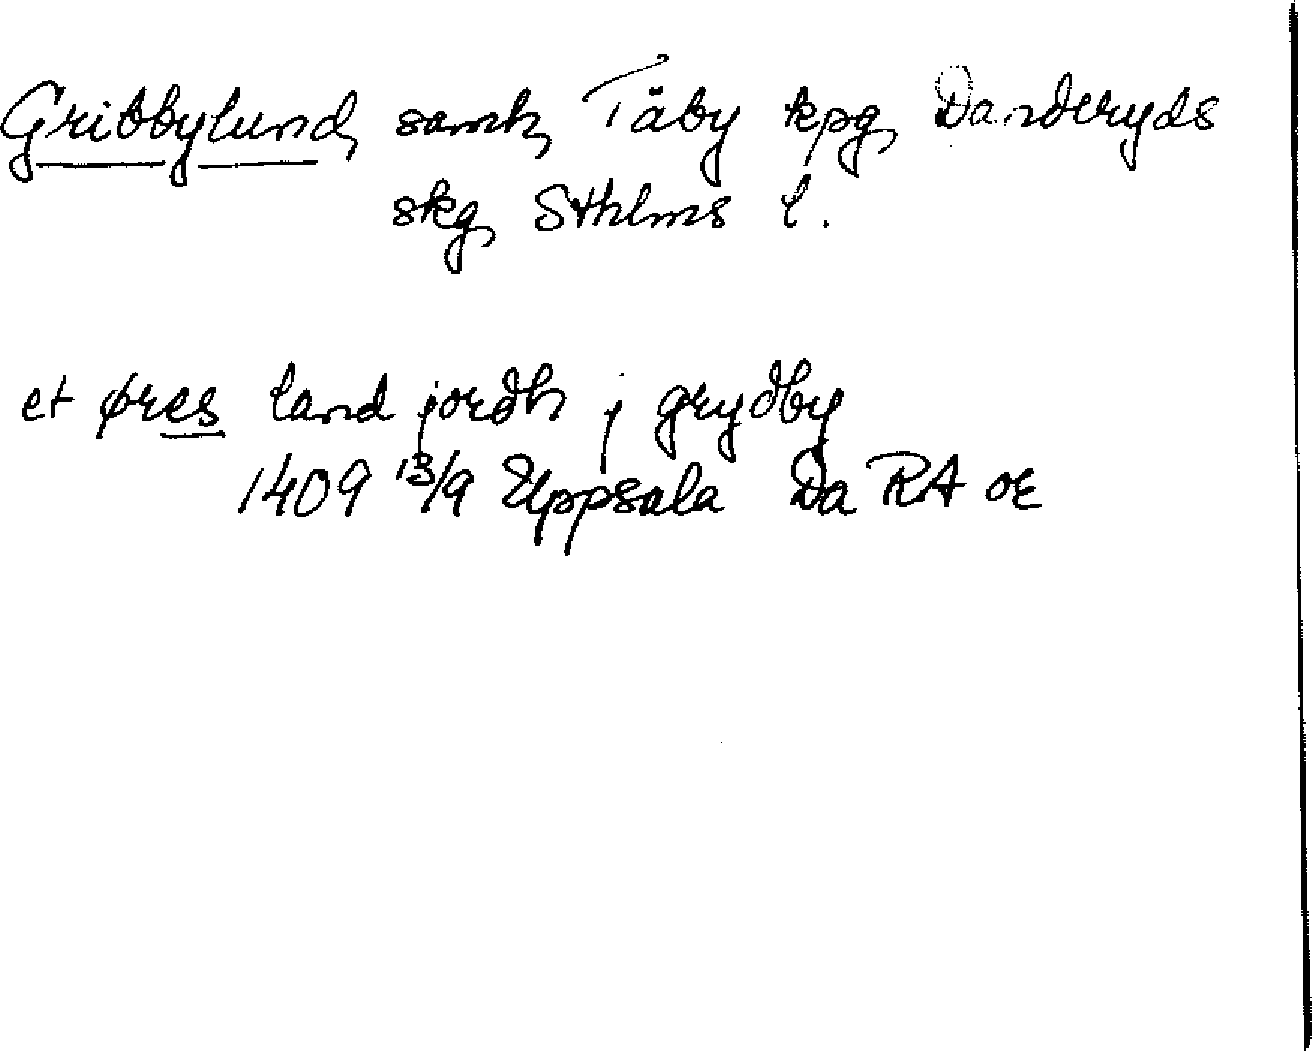 Gribbylund, samh, Täby kpg, Danderyds
skg, Sthlms l.
et øres land jordh j grydby
1409 13/9 Uppsala Da RA or